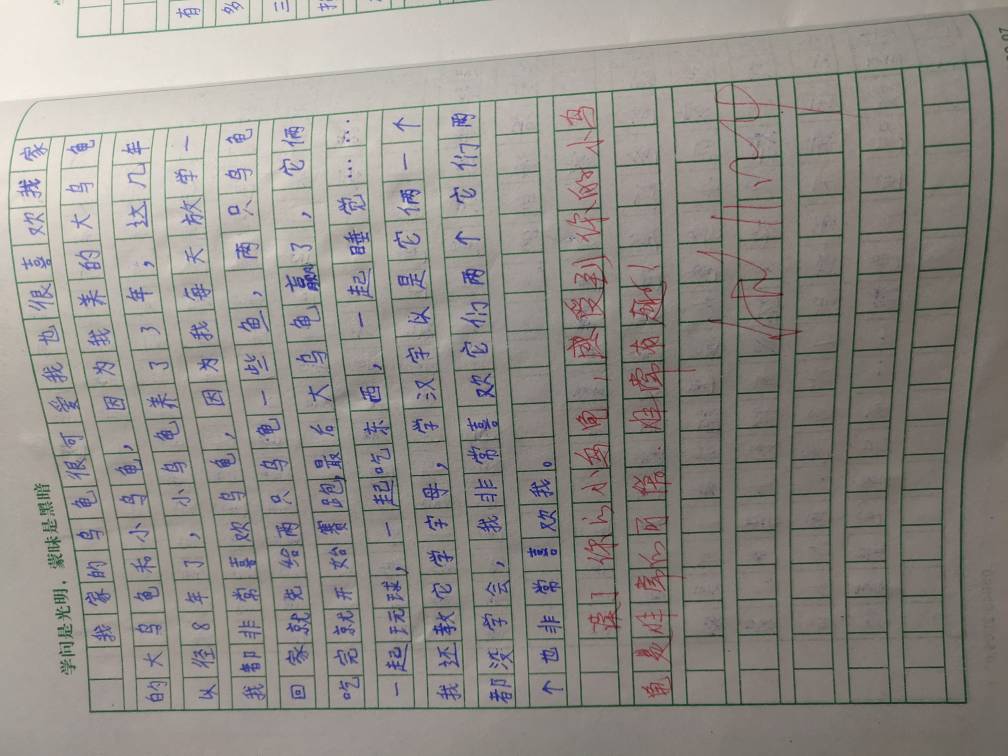 学问是光明，蒙昧是黑暗
我家的乌龟很可爱我也很喜欢我家
的大乌龟和小乌龟，因为我养的大乌龟
以径8年了，小乌龟养了3年，这几年
我都非常喜欢乌龟，因为我每天放学一
回家就先给两只乌龟一些鱼，两只乌龟
吃完就开始赛跑，最后大乌龟赢了，它俩
一起玩球，一起吃东西，一起睡觉……
我还教它学字母，学汉字以是它俩一个
都没学会，我非常喜欢它们两个它们两
个也非常喜欢我。
读了你的小乌龟，感受到你的小乌
龟 非常有趣！